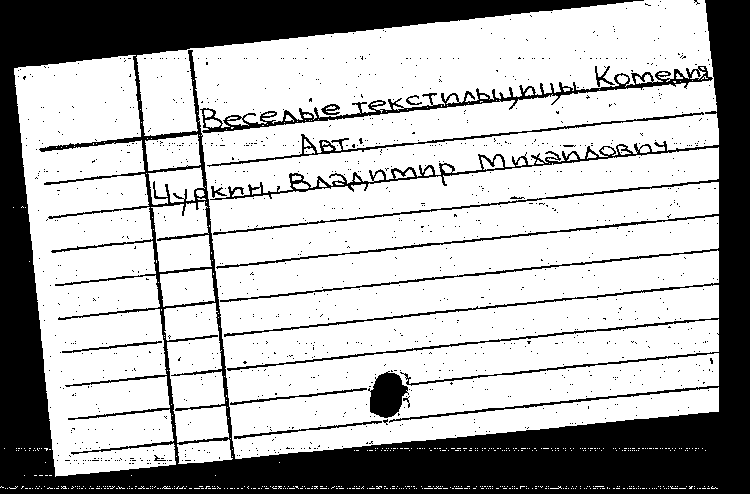 Веселые текстильщицы Комедия
Авт.:
Чуркин, Владимир Михайлович